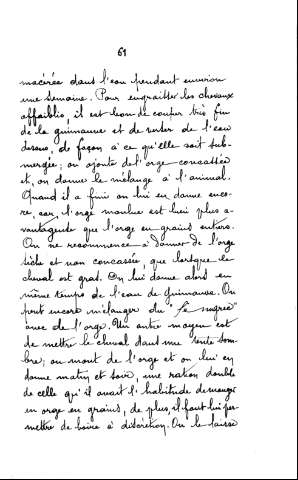 61
macérée dans l'eau pendant environ
une semaine. Pour engraisser les chevaux
affaiblis, il est bon de couper très fin
de la guimauve et de verser de l'eau
dessus, de façon à ce qu'elle soit sub-
mergée; on ajoute de l'orge concassée
et, on donne le mélange à l'animal.
Quand il a fini on lui en donne enco-
re, car, l'orge moulue est bien plus a-
vantageuse que l'orge en grains entiers.
On ne recommence à donner de l'orge
sèche et non concassée, que lorsque le
cheval est gras. On lui donne alors en
même temps de l'eau de guimauve. On
peut encore mélanger du "
avec de l'orge. Un autre moyen est
de mettre le cheval dans une tente som-
bre; on moud de l'orge et on lui en
donne matin et soir, une ration double
de celle qu'il avait l'habitude de manger
en orge en grains, de plus, il faut lui per-
mettre de boire à discrétion. On le laisse